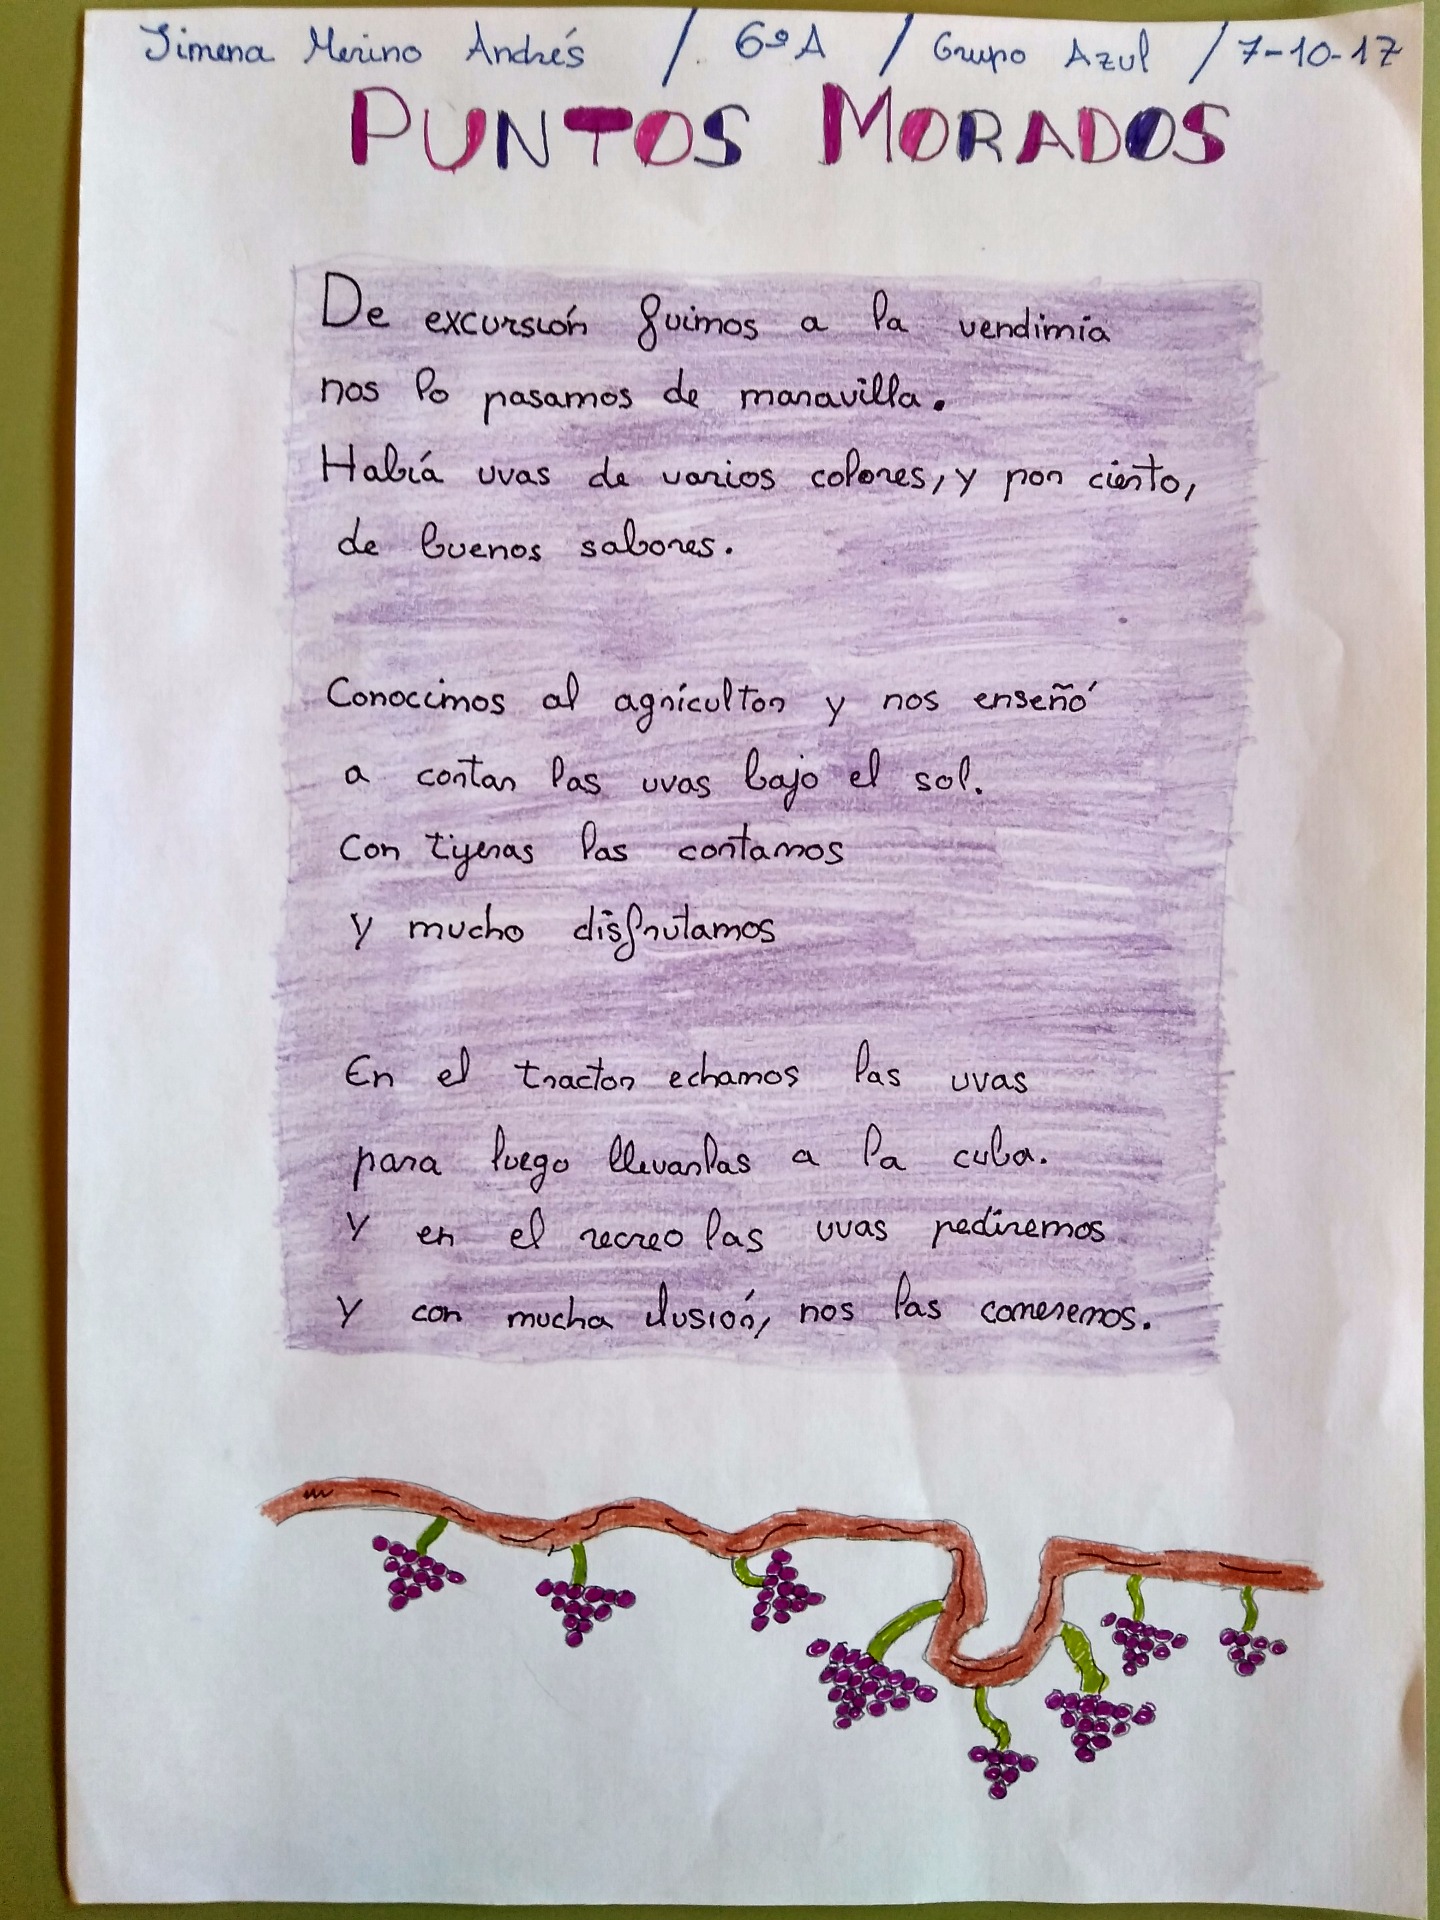 Jimena Merino Andrés / 6ºA / Grupo Azul / 7-10-17
PUNTOS MORADOS
De excursión fuimos a la vendimia
nos lo pasamos de maravilla.
Había uvas de varios colores, y por cierto,
de buenos sabores.
Conocimos al agrícultor y nos enseñó
a cortar las uvas bajo el sol.
Con tijeras las cortamos
y mucho disfrutamos
En el tractor echamos las uvas
para luego llevarlas a la cuba.
Y en el recreo las uvas pediremos
y con mucha ilusión, nos las comeremos.